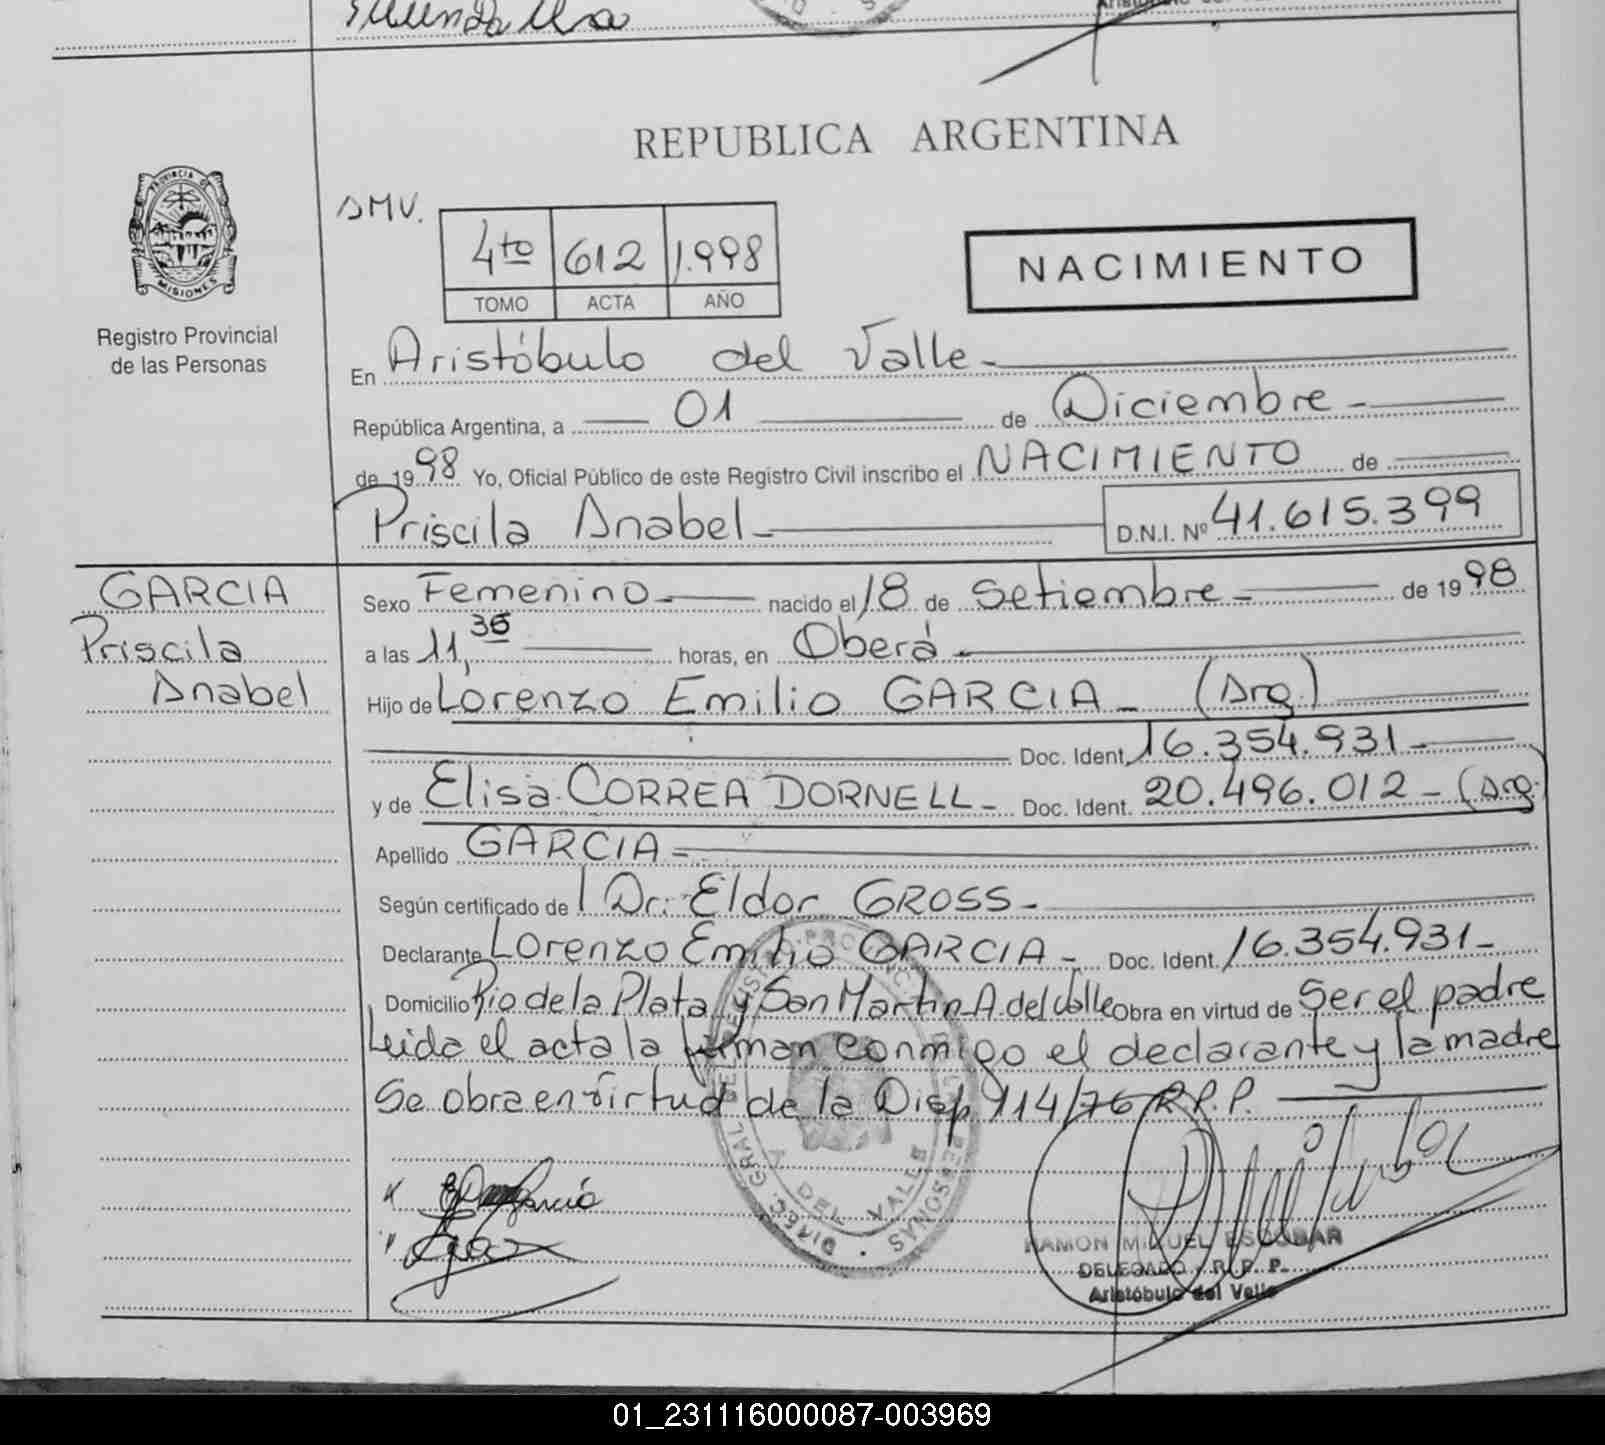 REPUBLICA ARGENTINA
PROVINCIA DE
MISIONES
Registro Provincial
de las Personas
SMV.
4to 612 1.998
TOMO ACTA AÑO
NACIMIENTO
En Aristóbulo del Valle
República Argentina, a 01 de Diciembre
de 1998 Yo, Oficial Público de este Registro Civil inscribo el NACIMIENTO de
Priscila Anabel D.N.I. Nº 41.615.399
GARCIA
Priscila
Anabel
Sexo Femenino nacido el 18 de Setiembre de 1998
a las 11, horas, en Oberá
Hijo de Lorenzo Emilio GARCIA (Arg.)
Doc. Ident. 16.354.931
y de Elisa CORREA DORNELL Doc. Ident. 20.496.012 (Arg)
Apellido GARCIA
Según certificado de l Dr. Eldor GROSS
Declarante Lorenzo Emilio GARCIA Doc. Ident. 16.354.931
Domicilio Rio de la Plata y San Martin A. del Valle Obra en virtud de Ser el padre
Leida el acta la firman conmigo el declarante y la madre
Se obra en virtud de la Disp. 914/76 R.P.P.
RAMON MIGUEL ESCOBAR
DELEGADO R. P. P.
Aristóbulo del Valle
01_231116000087-003969